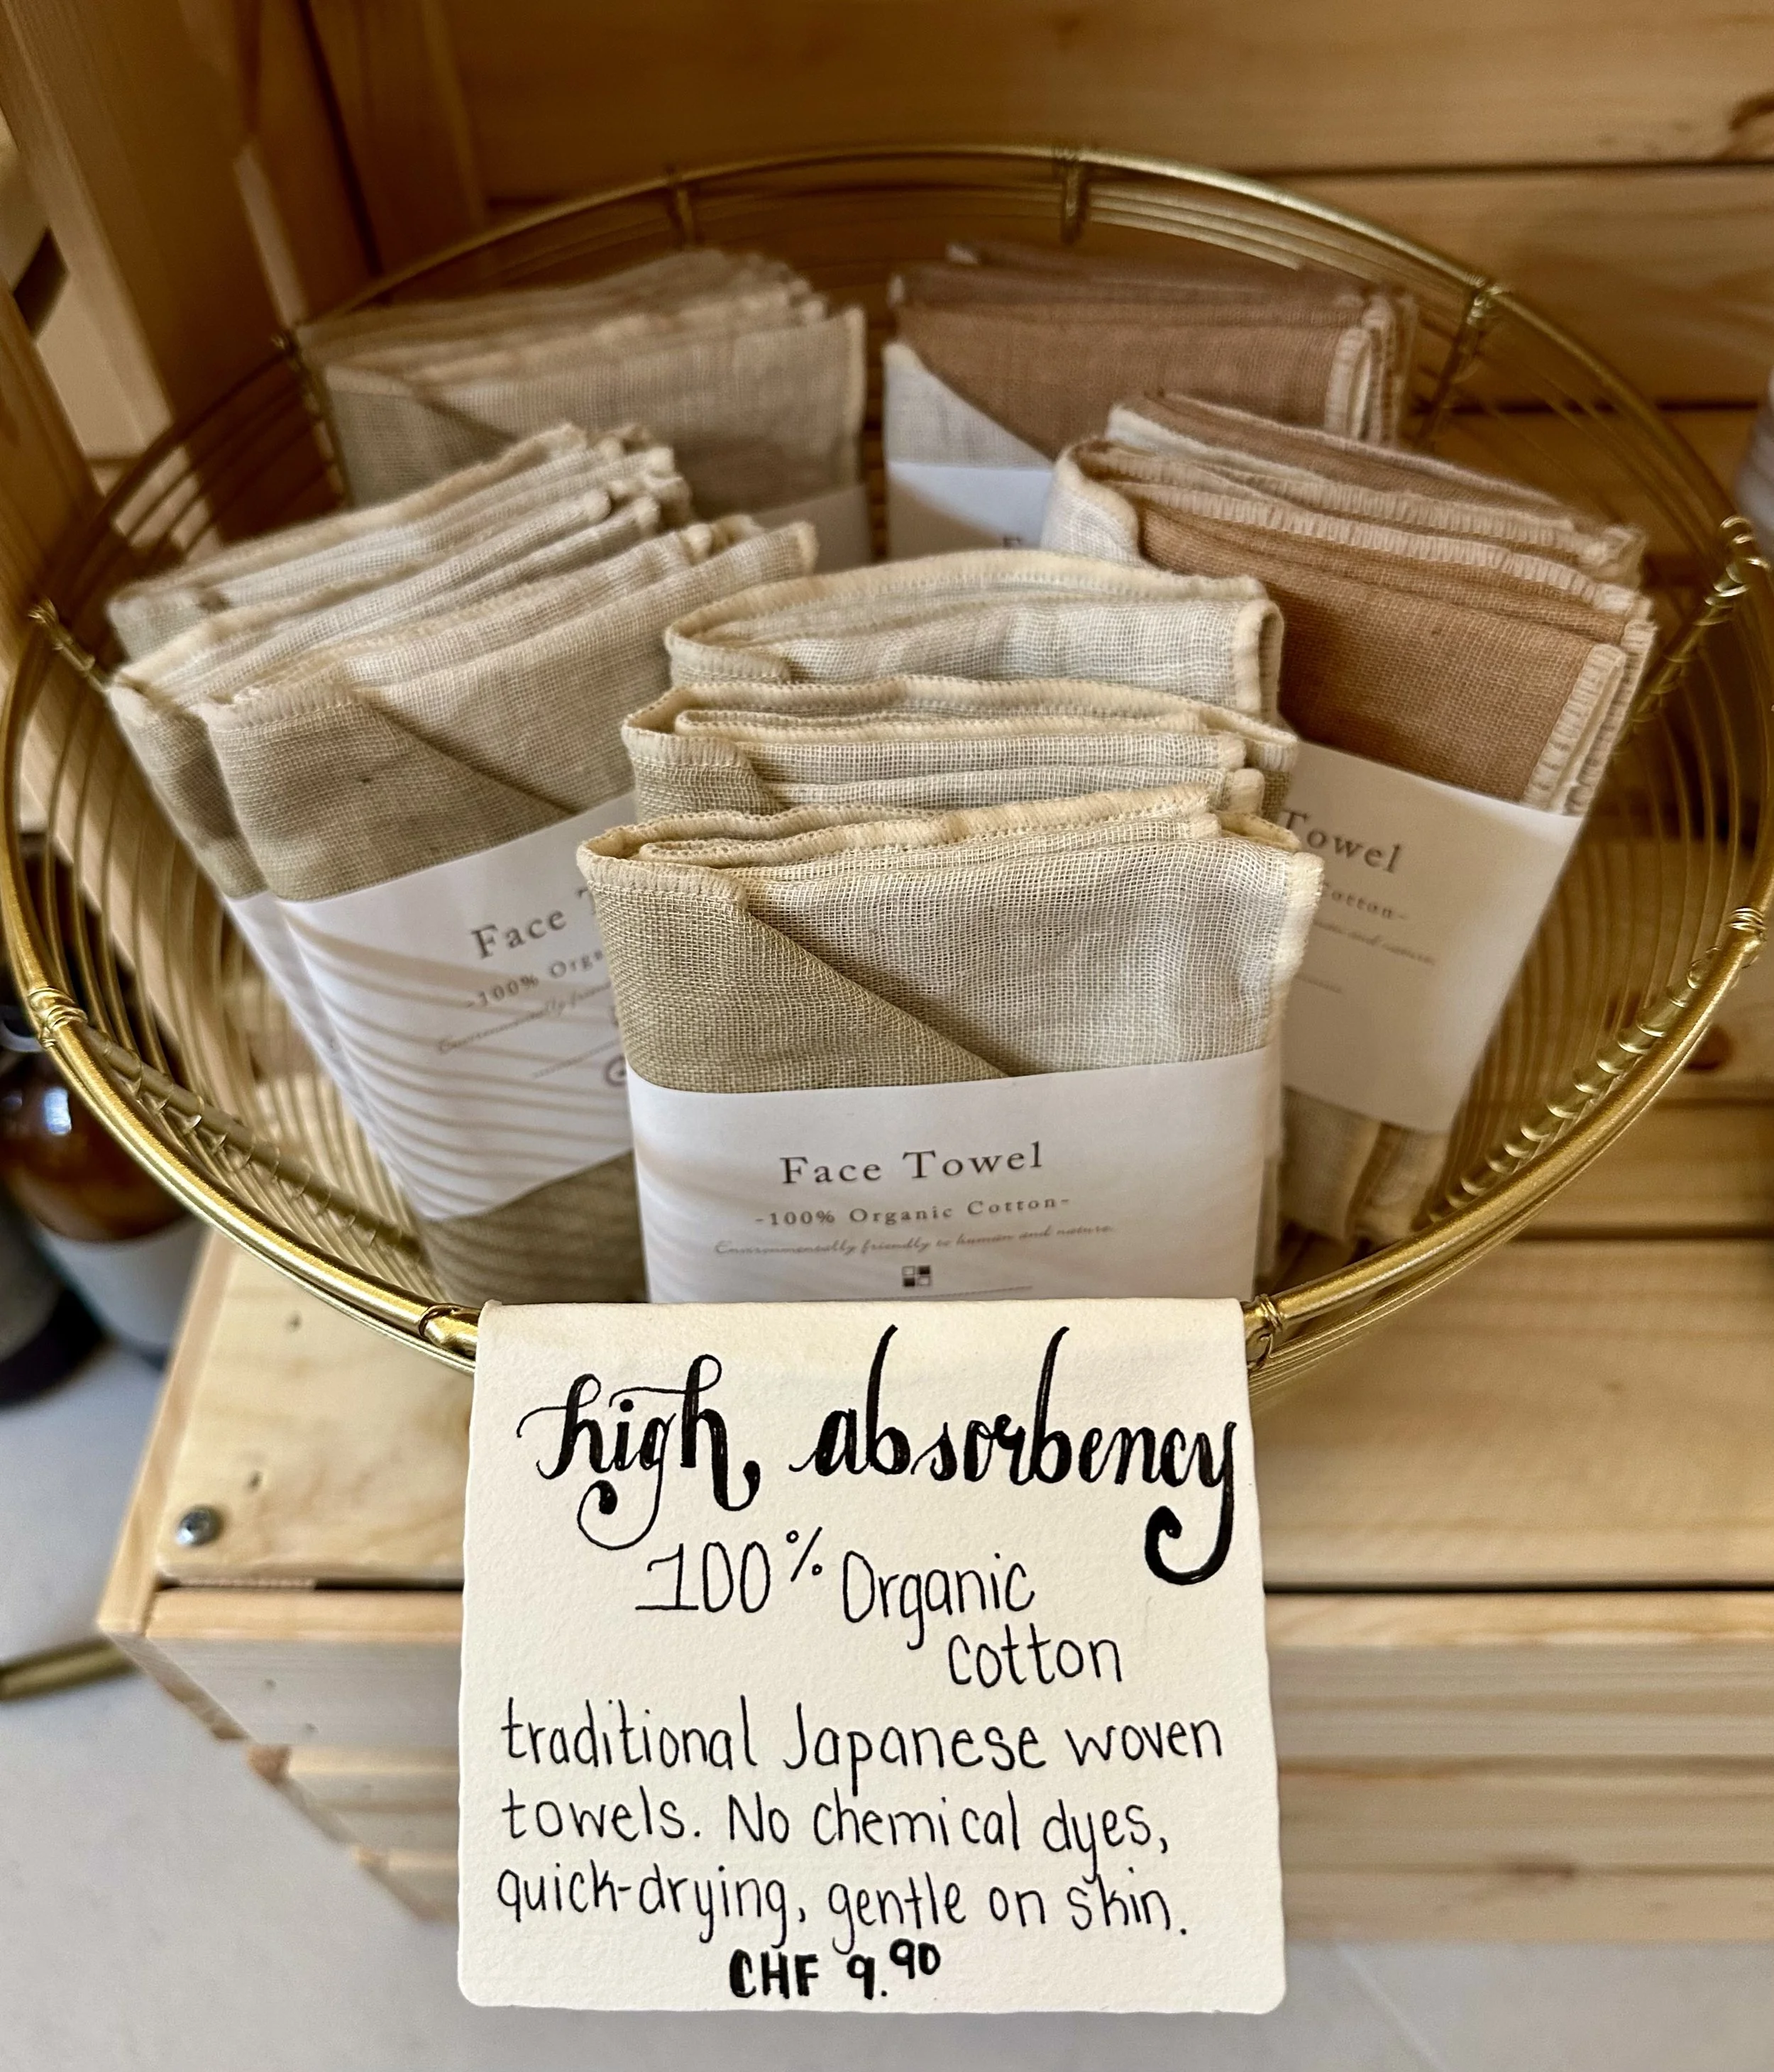 Face
-100% Orga
Towel
otton-
Face Towel
-100% Organic Cotton-
Environmentally friendly to human and nature.
high absorbency
100% Organic
cotton
traditional Japanese woven
towels. No chemical dyes,
quick-drying, gentle on skin.
CHF 9.90